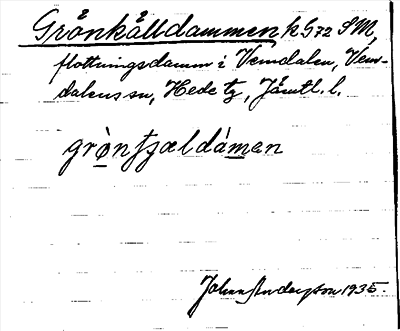 Grönkälldammen k G72 SM,
flottningsdamm i Vemdalen, Vem-
dalens sn, Hede tg, Jämtl. l.
grò̱nʃʃældám̱en
Johan Andersson 1935.